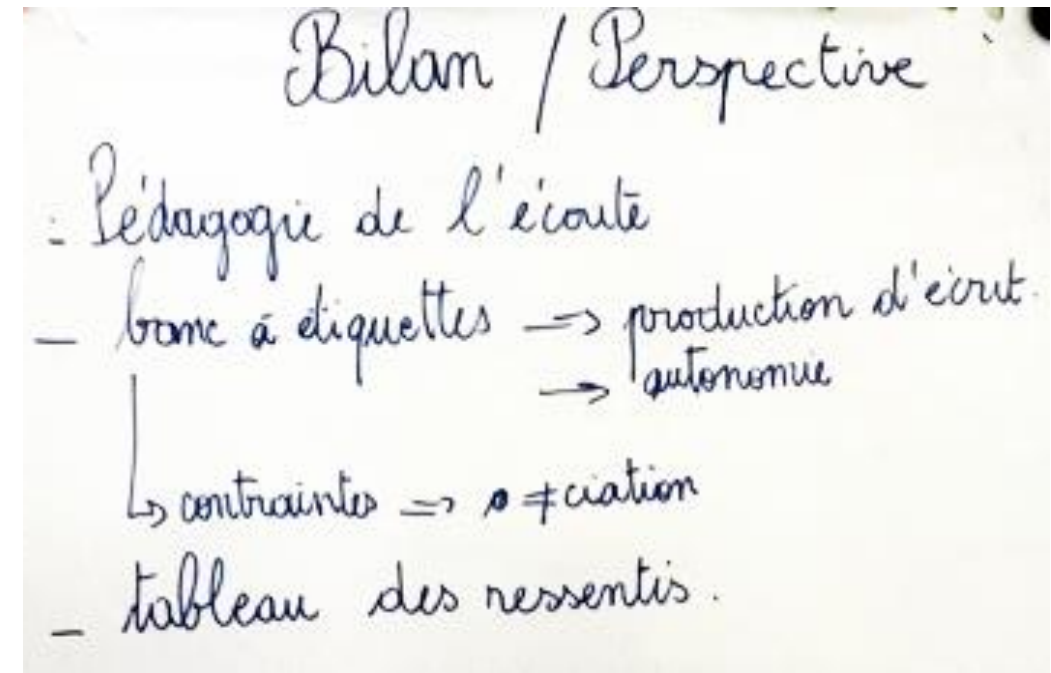 Bilan / Perspective
- Pédagogie de l'écoute
- banc à étiquettes => production d'écrit.
→ autonomie
↳ contraintes => ≠ciation
- tableau des ressentis.